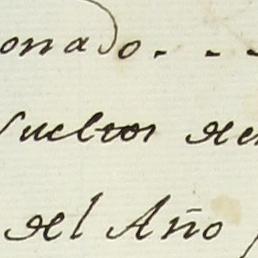 onado. - -
Sueltos de
del Año